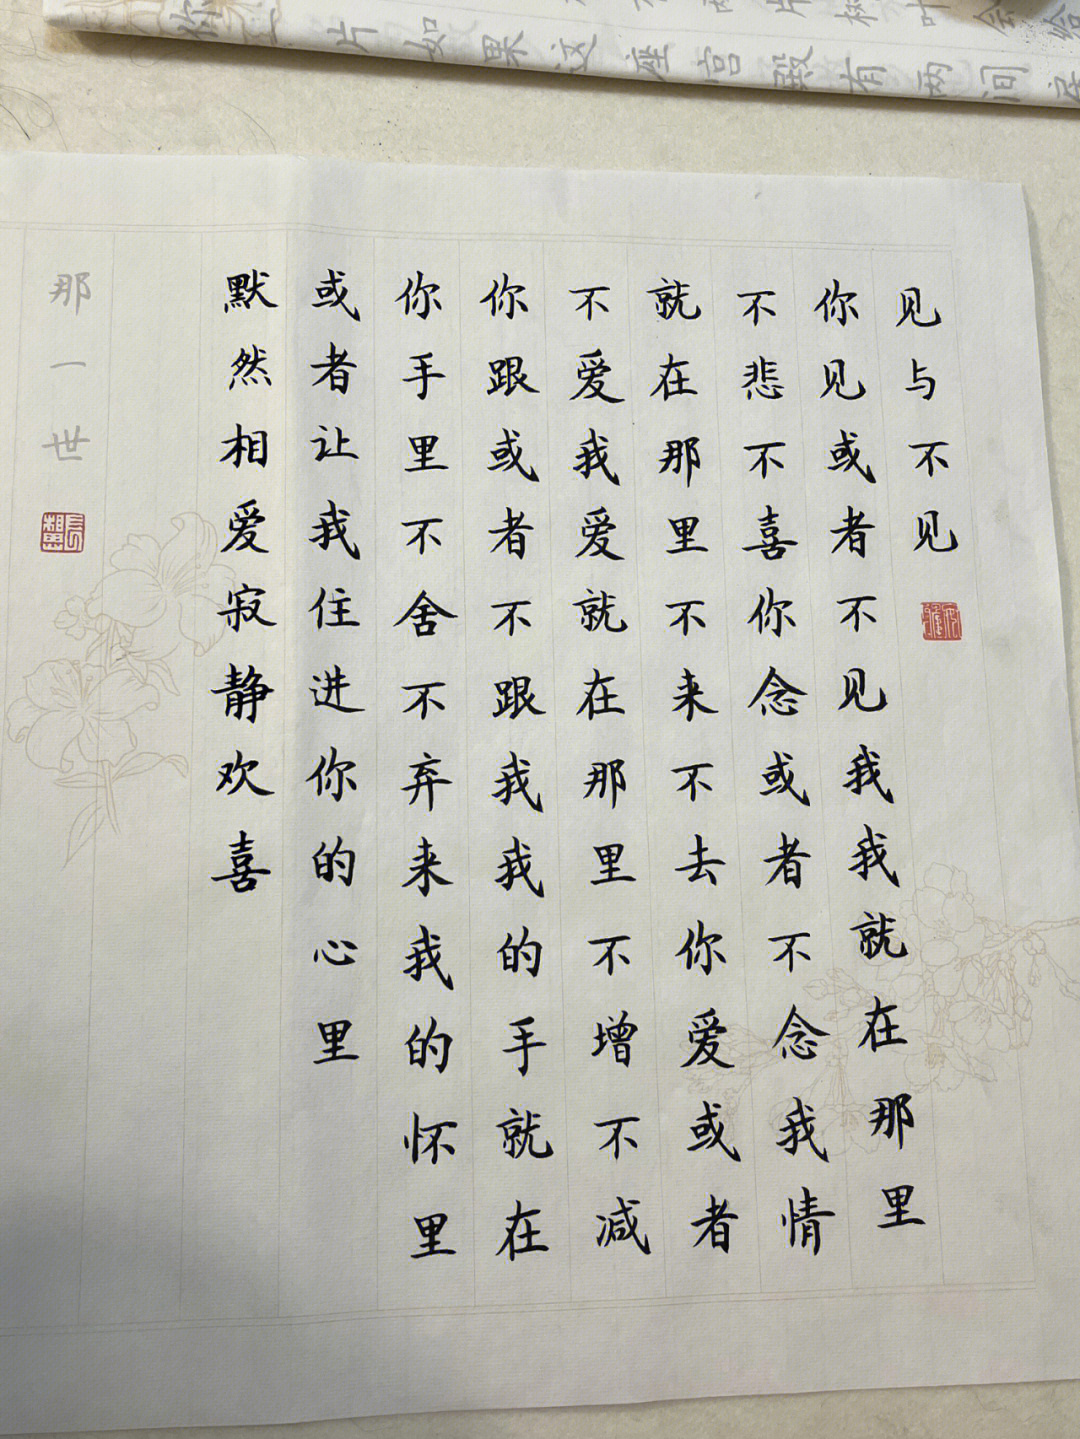 见与不见
你见或者不见我我就在那里
不悲不喜你念或者不念我情
就在那里不来不去你爱或者
不爱我爱就在那里不增不减
你跟或者不跟我我的手就在
你手里不舍不弃来我的怀里
或者让我住进你的心里
默然相爱寂静欢喜
那一世
片如果这座宫殿有两间